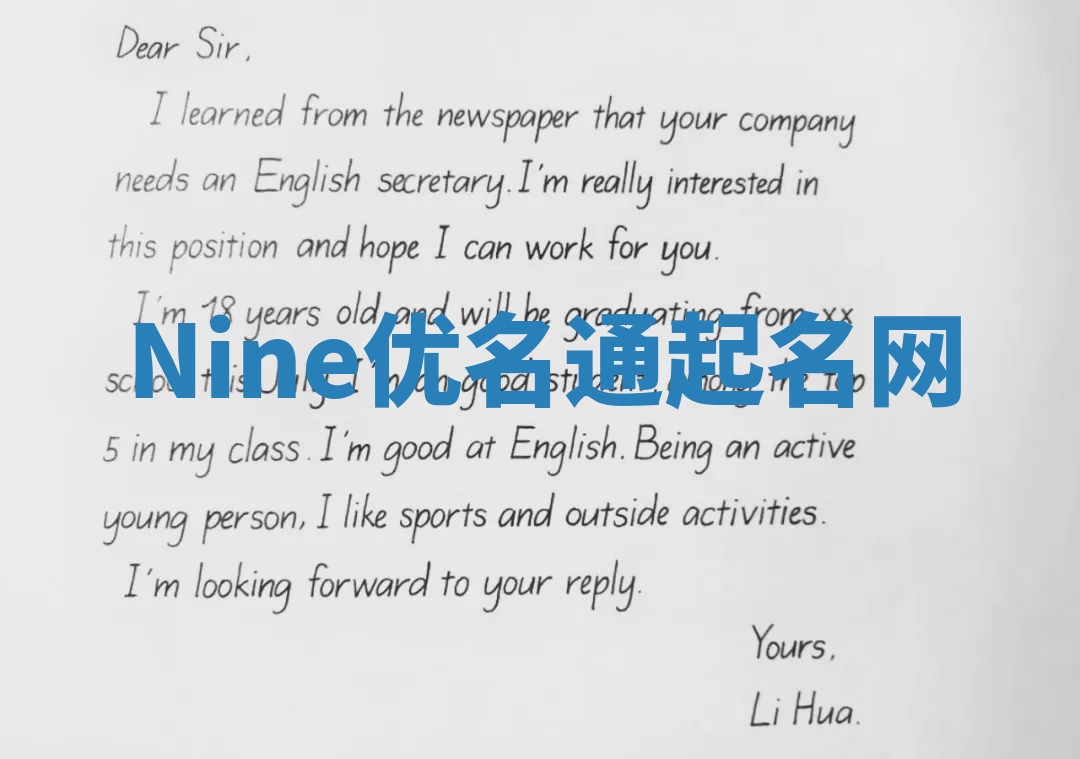 Dear Sir,
I learned from the newspaper that your company
needs an English secretary. I'm really interested in
this position and hope I can work for you.
I'm 18 years old and will be graduating from xx
Nine优名通起名网
school this July. I'm an good student, among the top
5 in my class. I'm good at English. Being an active
young person, I like sports and outside activities.
I'm looking forward to your reply.
Yours,
Li Hua.